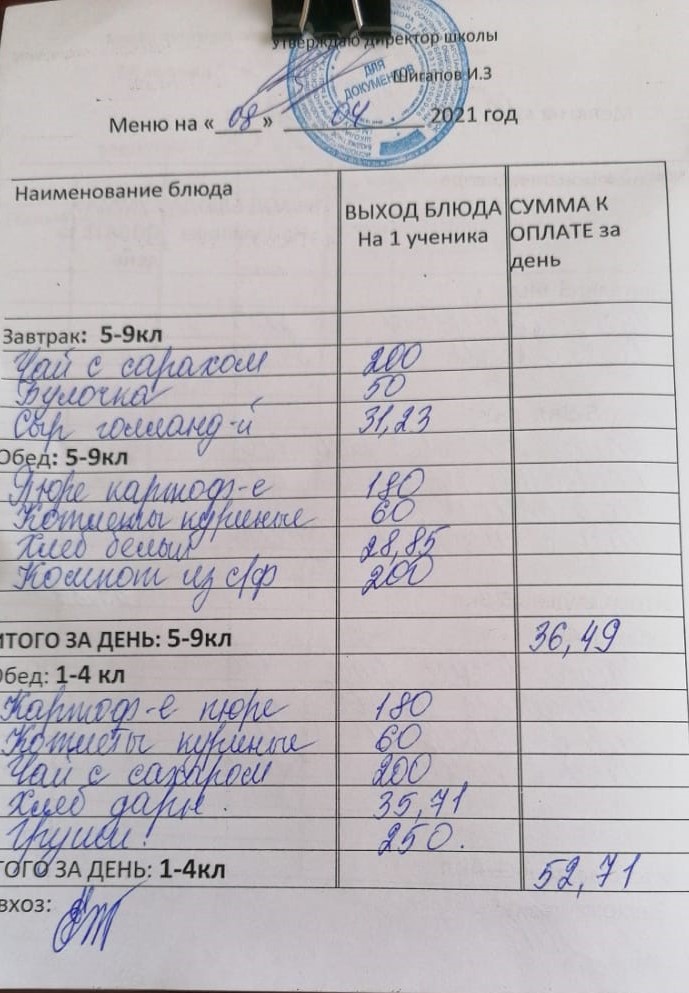 Утверждаю директор школы
Шигапов И.З
ДЛЯ ДОКУМЕНТОВ
Меню на «08» 04 2021 год
Наименование блюда ВЫХОД БЛЮДА На 1 ученика СУММА К ОПЛАТЕ за день
Завтрак: 5-9кл
Чай с сарахом 200
Булочка 50
Сыр голланд-й 31,23
Обед: 5-9кл
Пюре картоф-е 180
Котлеты куриные 60
Хлеб белый 28,85
Компот из с/ф 200
ИТОГО ЗА ДЕНЬ: 5-9кл 36,49
Обед: 1-4 кл
Картоф-е пюре 180
Котлеты куриные 60
Чай с сахаром 200
Хлеб дарн. 35,71
Груши. 250.
ТОГО ЗА ДЕНЬ: 1-4кл 52,71
вхоз: